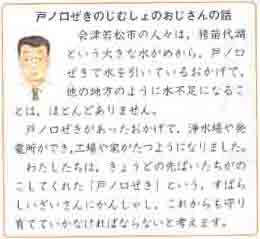 戸ノ口ぜきのじむしょのおじさんの話
会津若松市の人々は，猪苗代湖
という大きな水がめから，戸ノ口
ぜきで水を引いているおかげで，
他の地方のように水不足になるこ
とは，ほとんどありません。
戸ノ口ぜきがあったおかげで，浄水場や発
電所ができ，工場や家がたつようになりました。
わたしたちは，きょうどの先ぱいたちがの
こしてくれた「戸ノ口ぜき」という，すばら
しいざいさんにかんしゃし，これからも守り
育てていかなければならないと考えます。